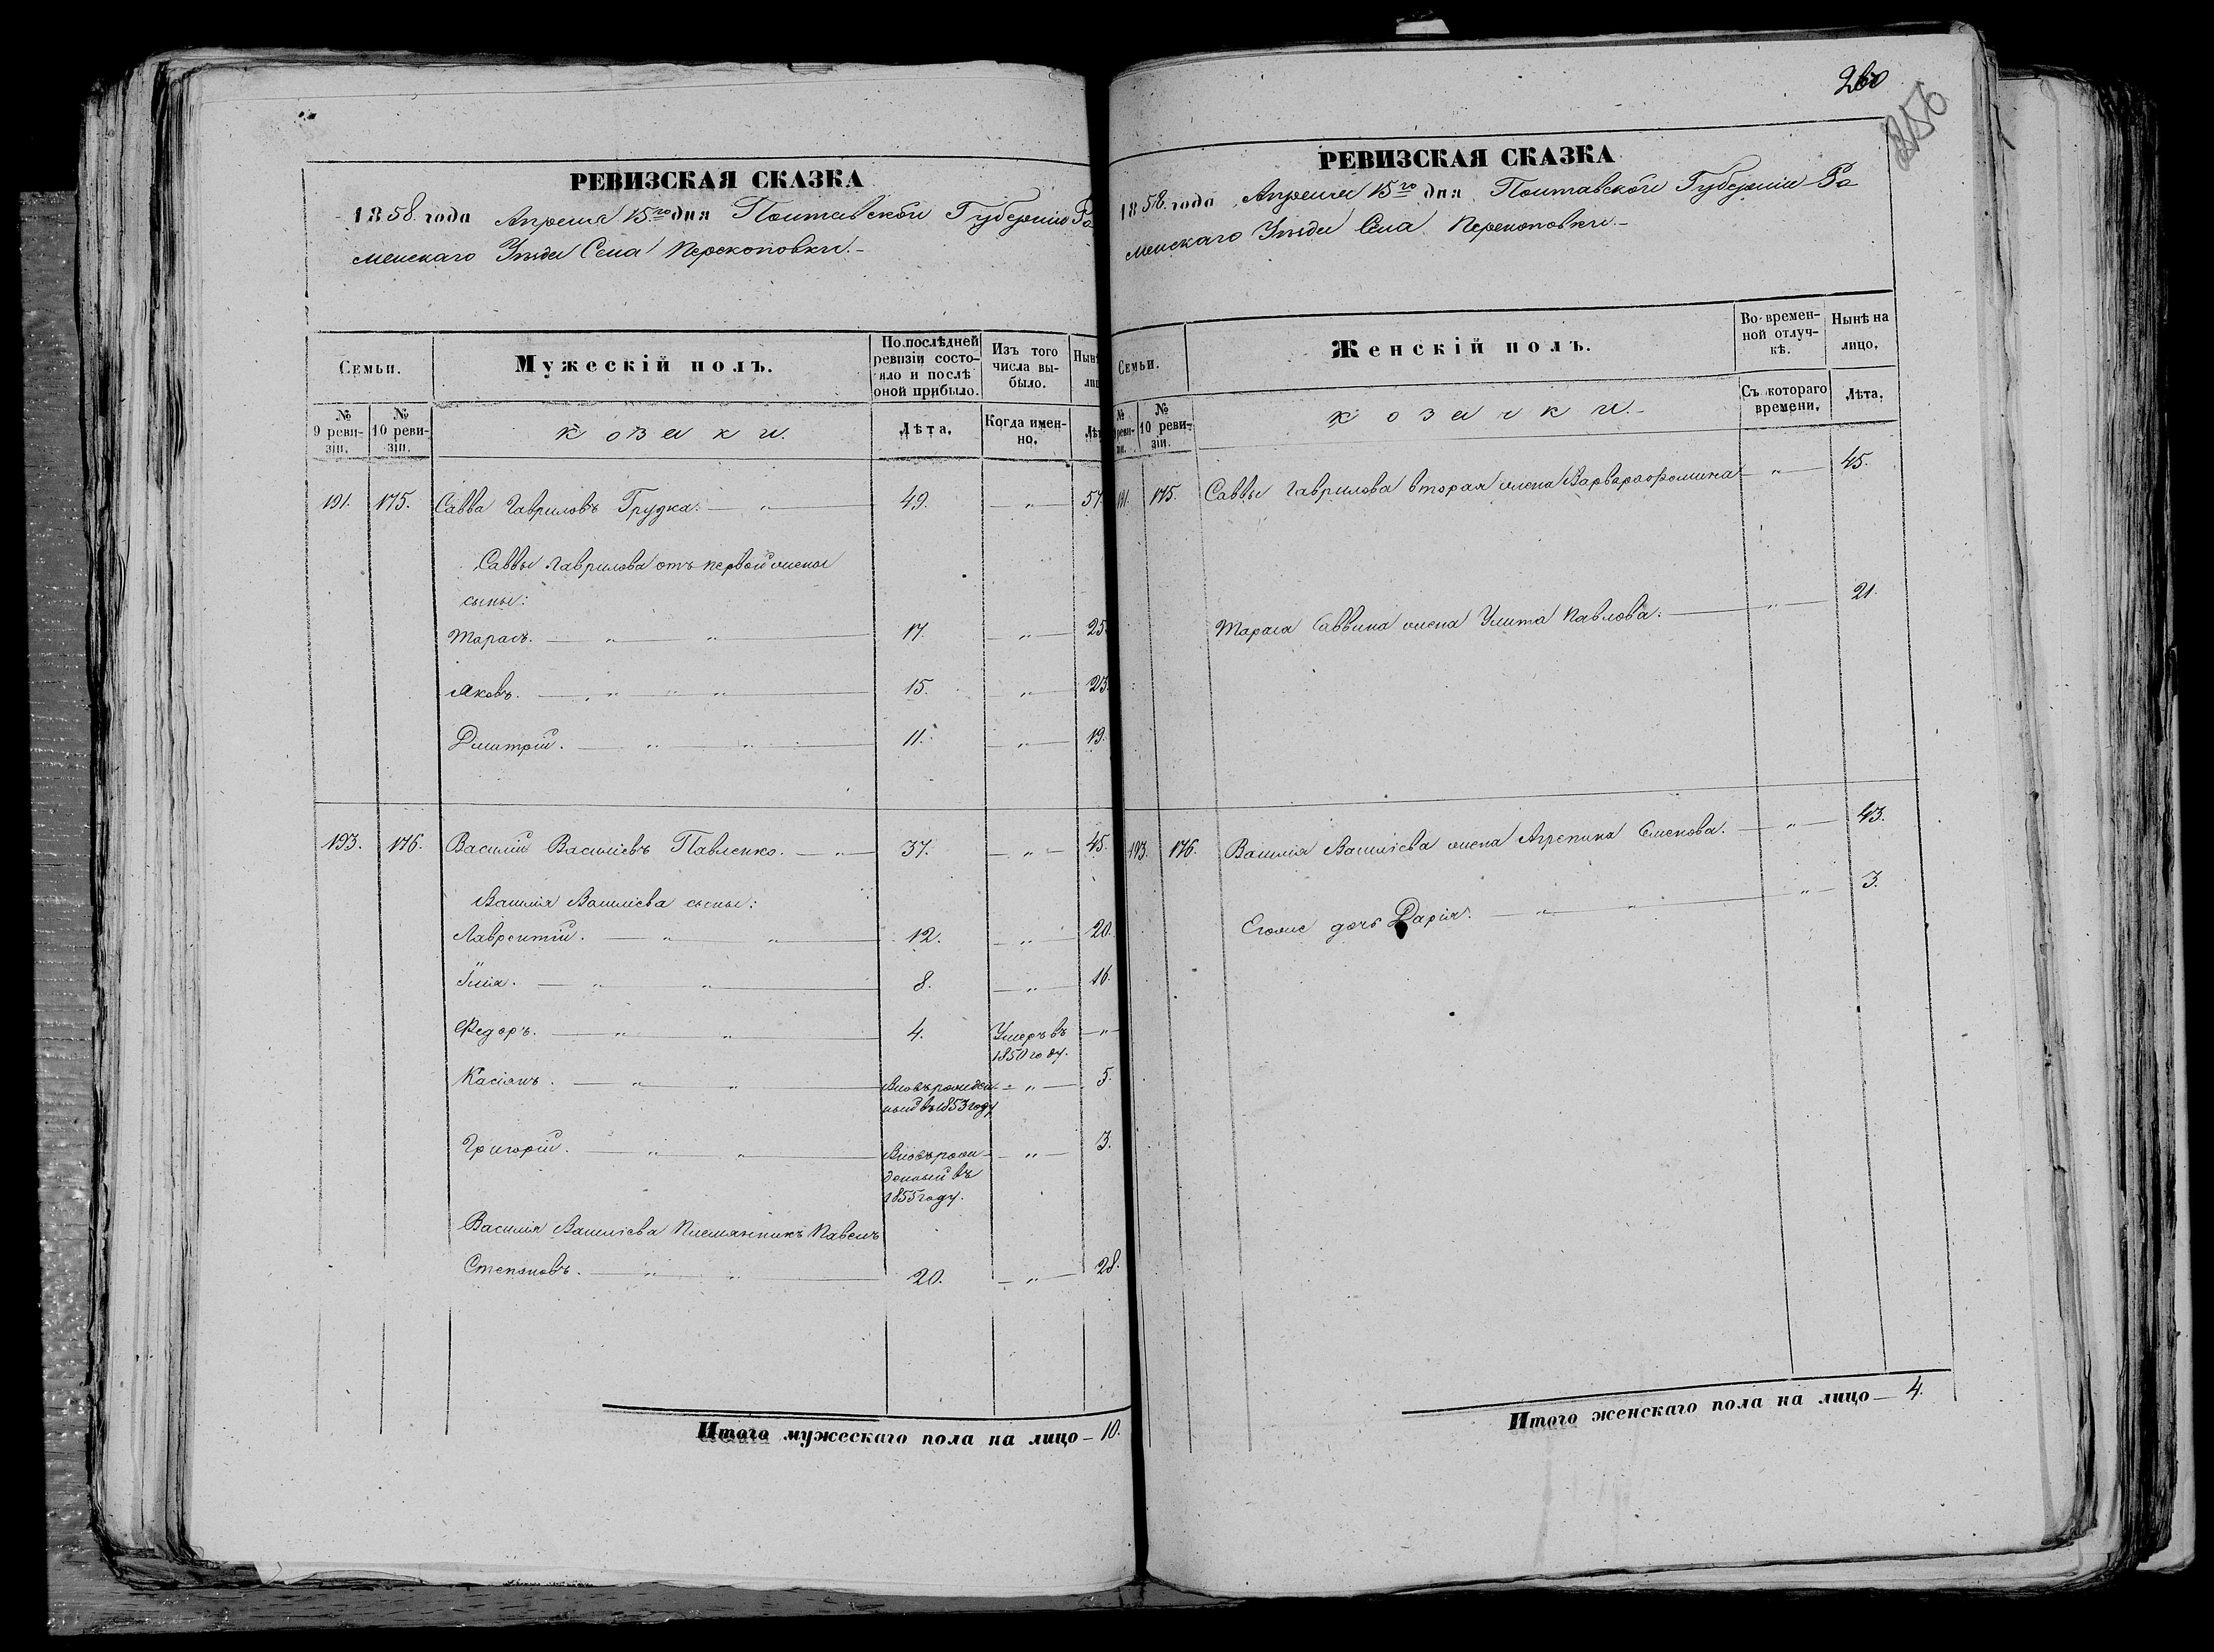 РЕВИЗСКАЯ СКАЗКА
1858. года Апреля 15го дня Полтавской Губерніи Ро-
менскаго Уѣзда Села Перекоповки.-
Семьи.
Мужескій полъ.
По послѣдней ревизіи состо-яло и послѣ оной прибыло.
Изъ того числа вы-было.
Нынѣ
№ 9 реви-зіи.
№ 10 реви-зіи.
Козаки.
Лѣта.
Когда имен-но.
191. 175. Савва Гавриловъ Грудка. — „ — 49. — „ — 57.
Саввы Гаврилова отъ первой жены
сыны:
Тарасъ. — „ „ — 17. — „ — 25.
Яковъ. — „ „ „ — 15. „ — 23.
Дмитрій. — „ „ — 11. — „ — 19.
193. 176. Василій Василіевъ Павленко. — „ — 37. — „ — 45.
Василія Василіева сыны:
Лаврентій. — „ „ — 12. — „ — 20.
Илія. — „ „ — 8. — „ — 16.
Федоръ. — „ „ — 4. Умеръ въ — „ —
1850 году.
Касіянъ. — „ „ — Вновьрожден- — „ — 5.
ный въ 1853 году
Григорій. — „ „ — Вновьрож- — „ — 3.
денный въ
1855 году.
Василія Василіева племянникъ Павелъ
Степановъ. — „ „ — 20. — „ — 28.
Итого мужескаго пола на лицо — 10.
260
256
РЕВИЗСКАЯ СКАЗКА
1858. года Апреля 15го дня Полтавской Губерніи Ро-
менскаго Уѣзда Села Перекоповки.-
Семьи.
Женскій полъ.
Во времен-ной отлуч-кѣ.
Нынѣ на лицо.
№ 10 реви-зіи.
Козачки.-
Съ котораго времени.
Лѣта.
191. 175. Саввы Гаврилова вторая жена Варвара Фомина — „ — 45.
Тараса Саввина жена Улита Павлова. — „ — 21.
193. 176. Василія Василіева жена Агрепина Семенова. — „ — 43.
Егоже дочь Дарія. — „ „ — „ — 3.
Итого женскаго пола на лицо — 4.